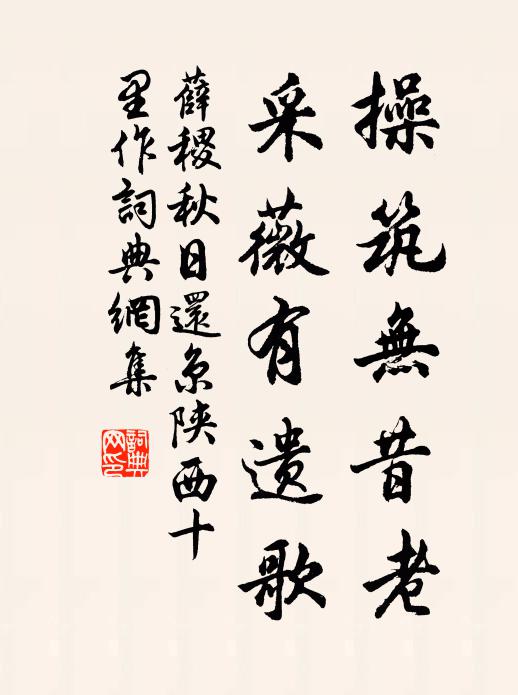 操筑無昔老
采薇有遗歌
薛稷秋日還京陕西十
里作詞典網集
詞典
网印